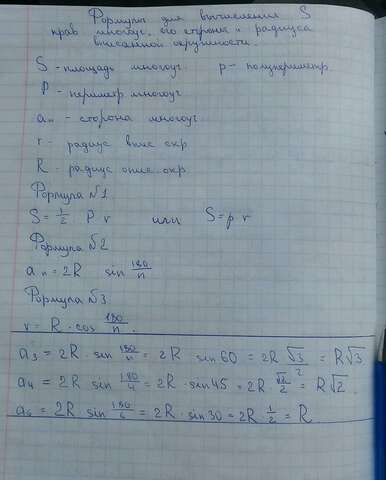 Формулы для вычисления S
прав многоуг, его стороны и радиуса
вписанной окружности.
S - площадь многоуг. p - полупериметр
P - периметр многоуг
aₙ - сторона многоуг.
r - радиус впис окр
R - радиус опис окр
Формула №1.
S = 1/2 P r или S = p r
Формула №2
aₙ = 2R sin 180/n
Формула №3
r = R · cos 180/n.
a₃ = 2R · sin 180/n = 2R sin 60 = 2R √3/2 = R√3
a₄ = 2R sin 180/4 = 2R · sin 45 = 2R · √2/2 = R√2.
a₆ = 2R sin 180/6 = 2R · sin 30 = 2R 1/2 = R.